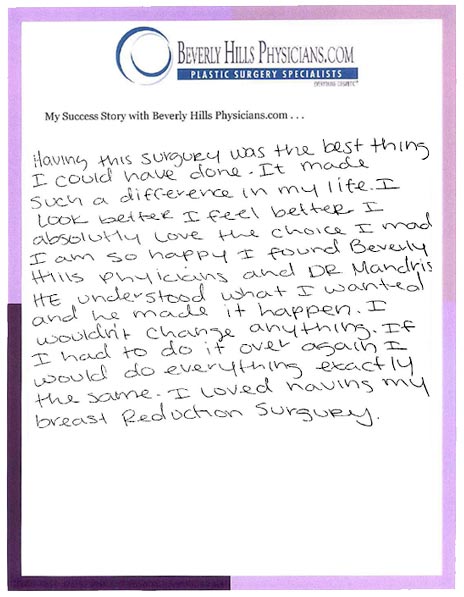 BEVERLY HILLS PHYSICIANS.COM
PLASTIC SURGERY SPECIALISTS
My Success Story with Beverly Hills Physicians.com . . .
Having this surgury was the best thing
I could have done. It made
such a difference in my life. I
Look better I feel better I
absolutly Love the choice I mad
I am so happy I found Beverly
Hills Physicians and DR Mandris
HE understood what I wanted
and he made it happen. I
wouldn't change anything. If
I had to do it over again I
would do everything exactly
the same. I Loved having my
breast Reduction Surgury.